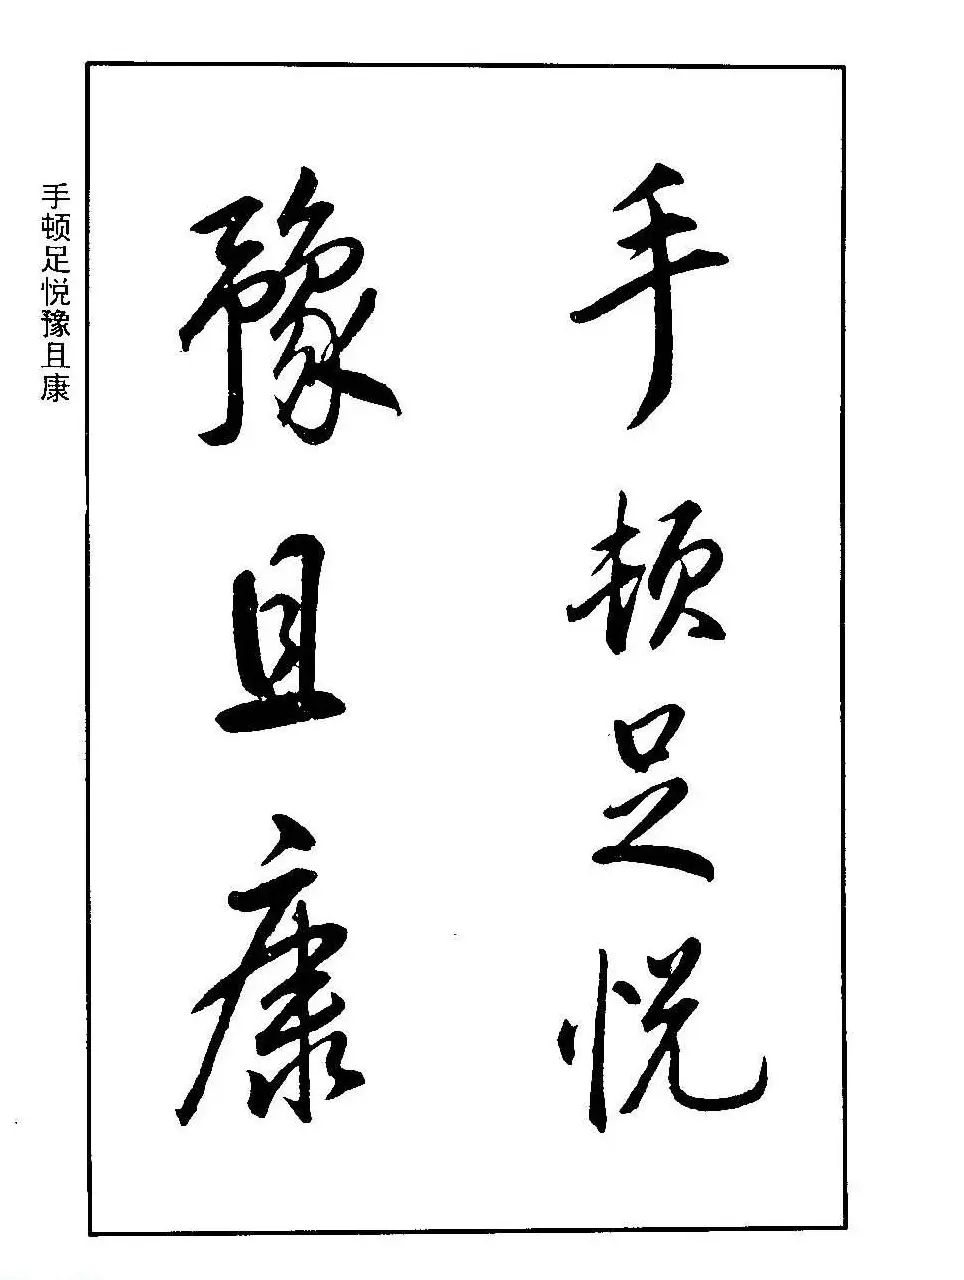 手顿足悦
豫且康
手顿足悦豫且康